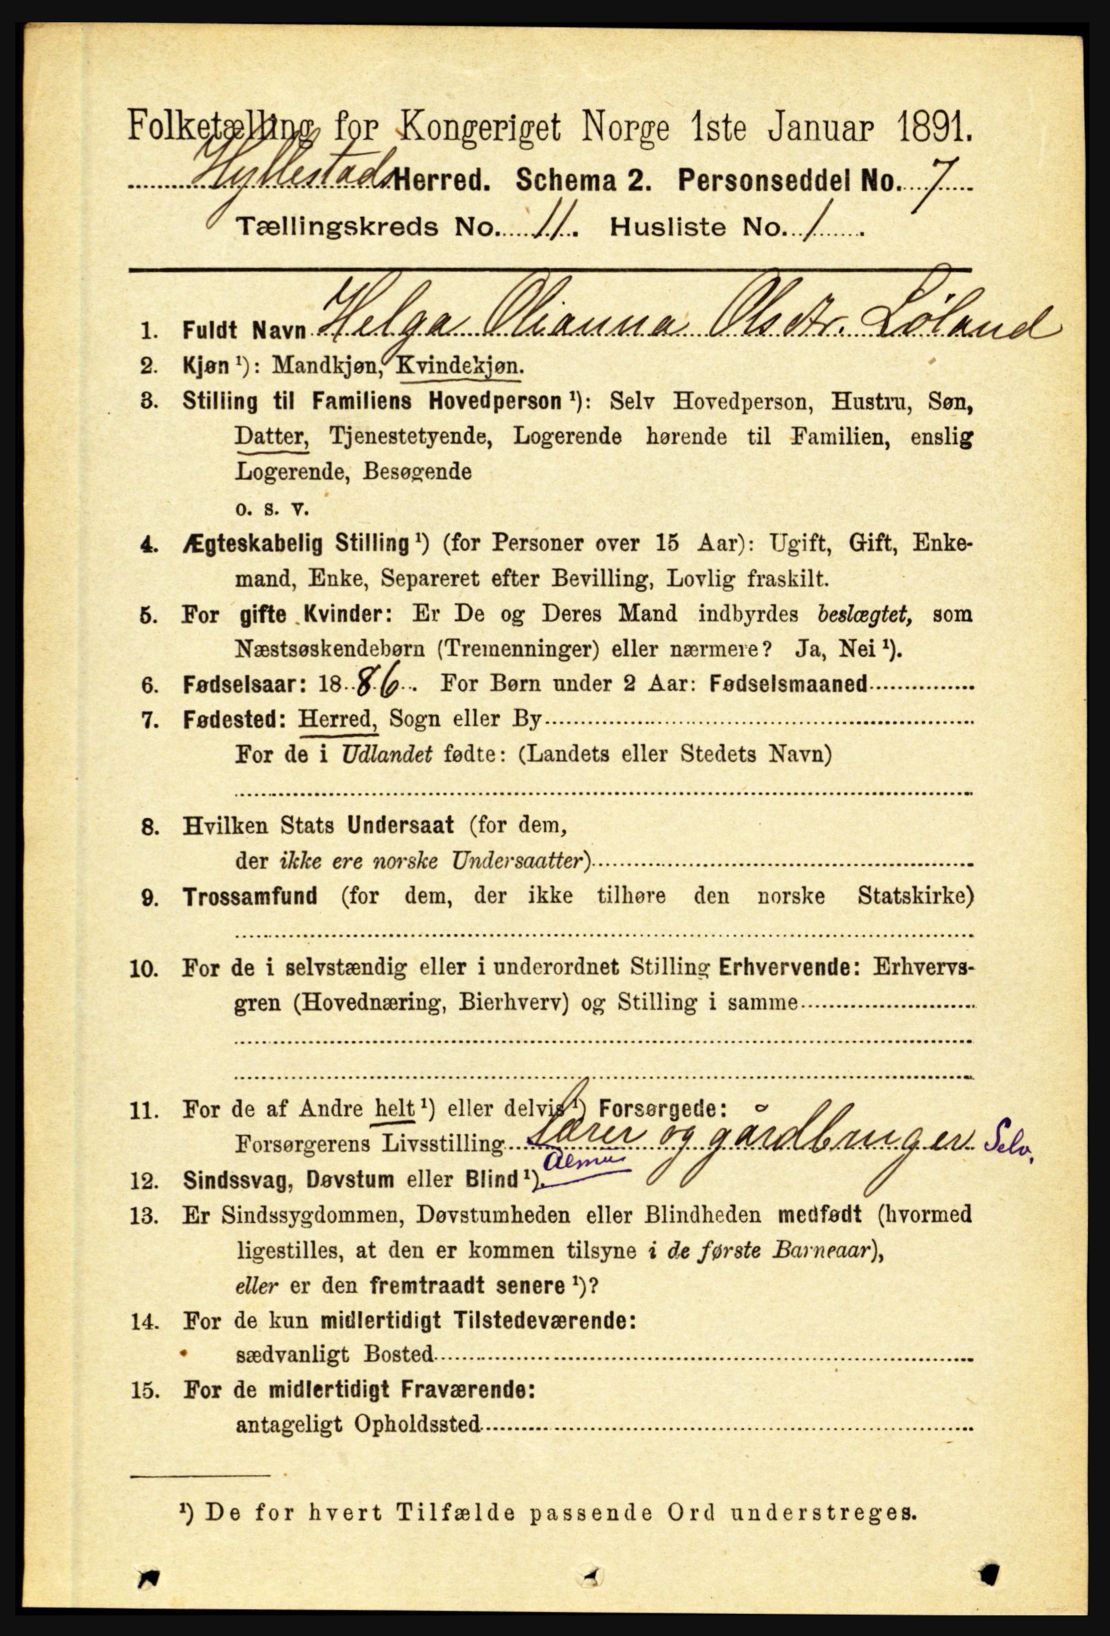 Folketælling for Kongeriget Norge 1ste Januar 1891.
Hyllestads Herred. Schema 2. Personseddel No. 7
Tællingskreds No. 11. Husliste No. 1.
1. Fuldt Navn Helga Olianna Olsdtr. Løland
2. Kjøn ¹): Mandkjøn, Kvindekjøn.
3. Stilling til Familiens Hovedperson ¹): Selv Hovedperson, Hustru, Søn,
Datter, Tjenestetyende, Logerende hørende til Familien, enslig
Logerende, Besøgende
o. s. v.
4. Ægteskabelig Stilling ¹) (for Personer over 15 Aar): Ugift, Gift, Enke-
mand, Enke, Separeret efter Bevilling, Lovlig fraskilt.
5. For gifte Kvinder: Er De og Deres Mand indbyrdes beslægtet, som
Næstsøskendebørn (Tremenninger) eller nærmere? Ja, Nei ¹).
6. Fødselsaar: 1886. For Børn under 2 Aar: Fødselsmaaned
7. Fødested: Herred, Sogn eller By
For de i Udlandet fødte: (Landets eller Stedets Navn)
8. Hvilken Stats Undersaat (for dem,
der ikke ere norske Undersaatter)
9. Trossamfund (for dem, der ikke tilhøre den norske Statskirke)
10. For de i selvstændig eller i underordnet Stilling Erhvervende: Erhvervs-
gren (Hovednæring, Bierhverv) og Stilling i samme
11. For de af Andre helt ¹) eller delvis ¹) Forsørgede:
Forsørgerens Livsstilling Lærer og gårdbruger Selv.
Almu
12. Sindssvag, Døvstum eller Blind ¹).
13. Er Sindssygdommen, Døvstumheden eller Blindheden medfødt (hvormed
ligestilles, at den er kommen tilsyne i de første Barneaar),
eller er den fremtraadt senere ¹)?
14. For de kun midlertidigt Tilstedeværende:
sædvanligt Bosted
15. For de midlertidigt Fraværende:
antageligt Opholdssted
¹) De for hvert Tilfælde passende Ord understreges.